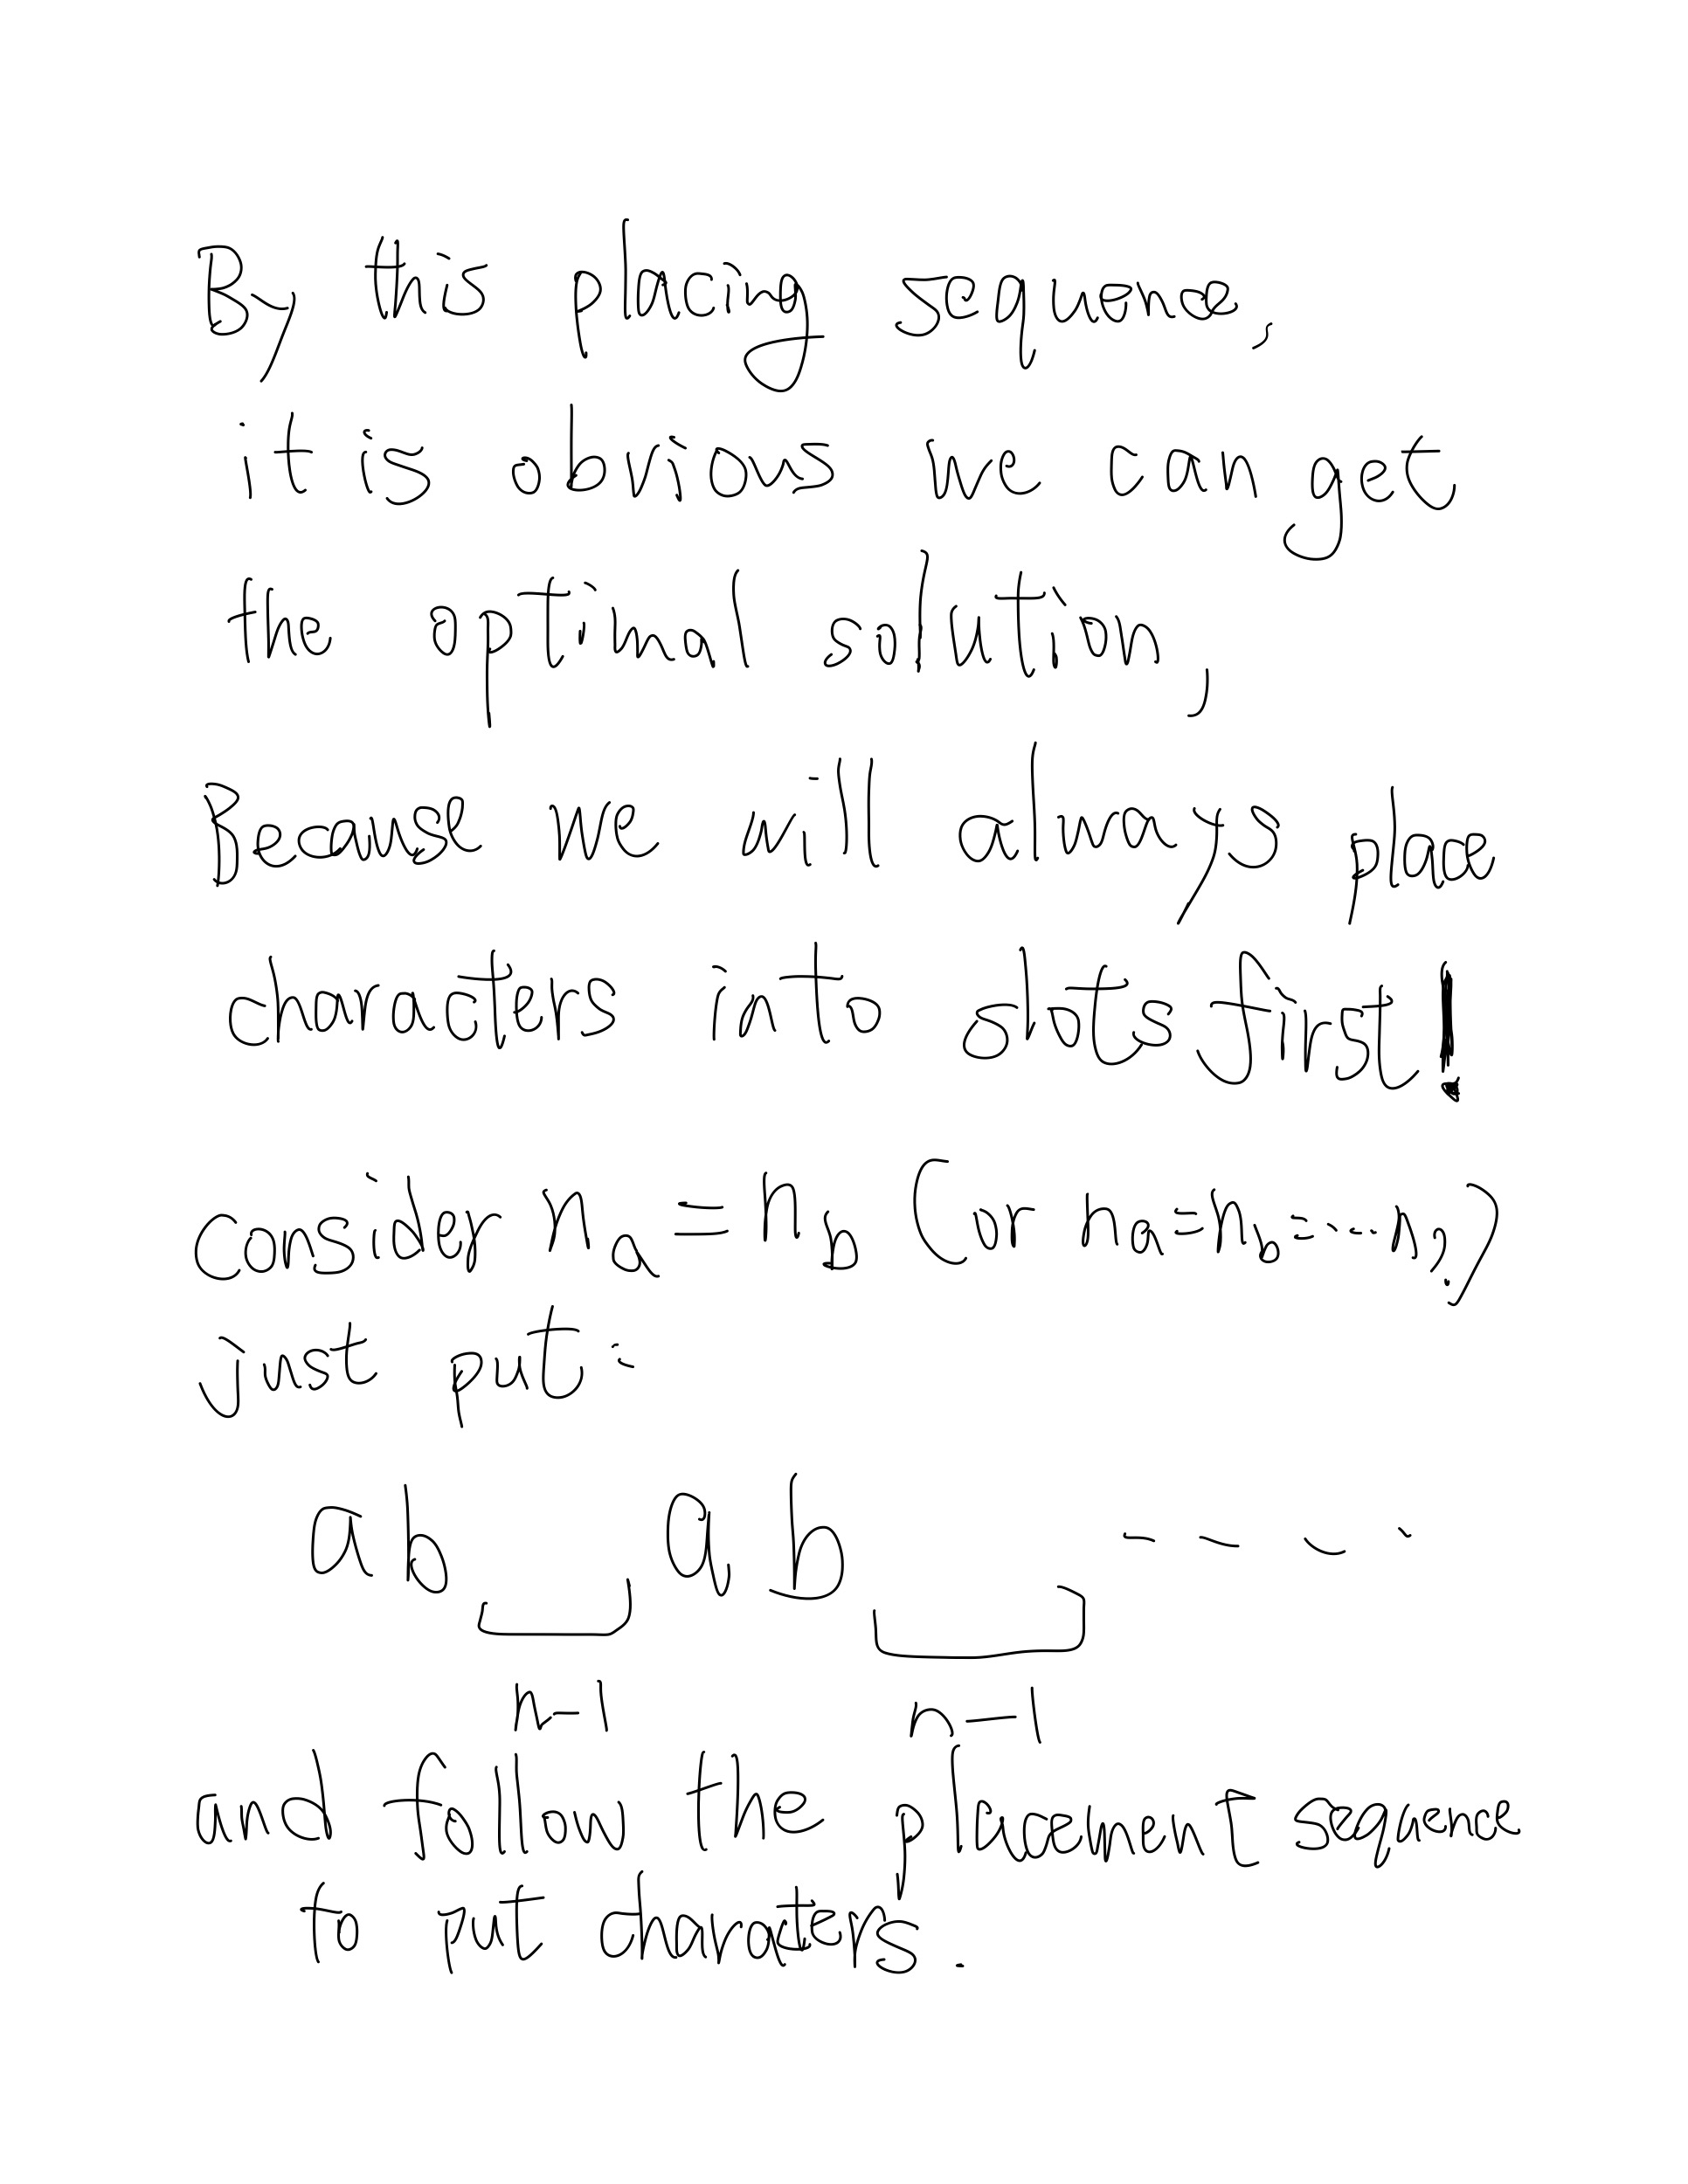 By this placing sequence,
it is obvious we can get
the optimal solution,
Because we will always place
characters into slots first!
consider na = nb (or na=nb=---n?)
just put:
ab ab - - - -
n-1 n-1
and follow the placement sequence
to put characters.